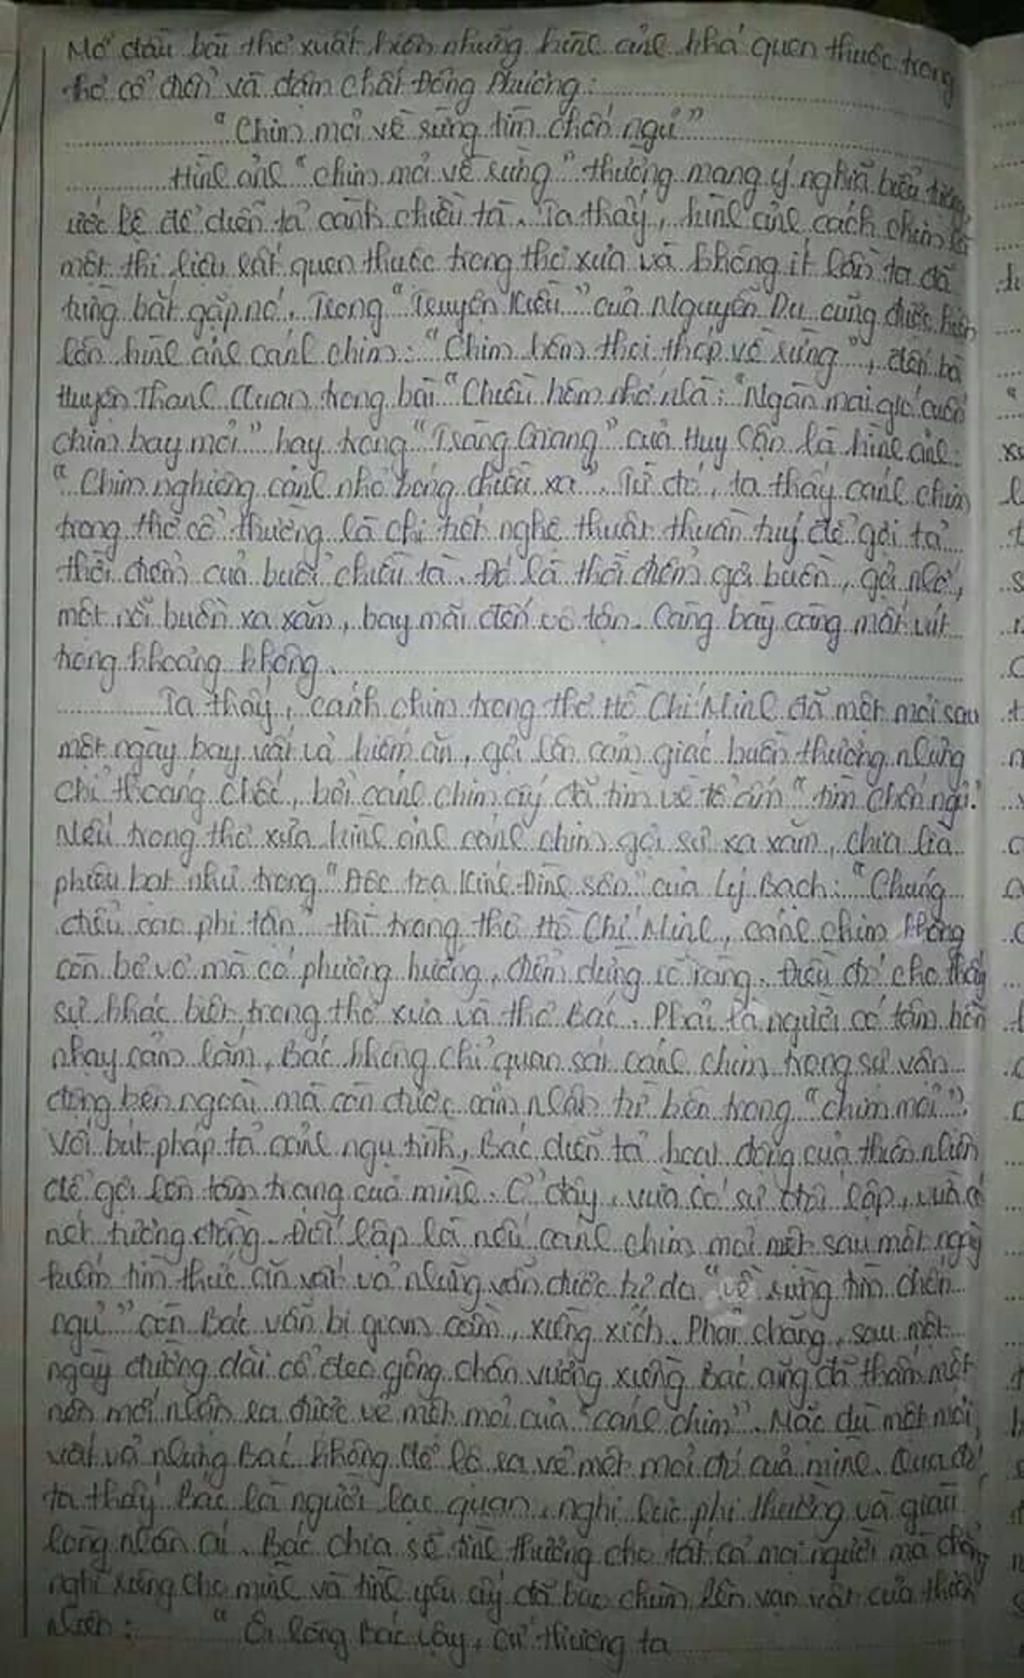 Mở đầu bài thơ xuất hiện những hình ảnh khá quen thuộc trong
thơ cổ điển và đậm chất Đông Phương:
"Chim mỏi về rừng tìm chốn ngủ"
Hình ảnh "chim mỏi về rừng" thường mang ý nghĩa biểu tượng
ước lệ để diễn tả cảnh chiều tà. Ta thấy, hình ảnh cách chim là
một thi liệu rất quen thuộc trong thơ xưa và không ít lần ta đã
từng bắt gặp nó. Trong "Truyện Kiều" của Nguyễn Du cũng được hiện
lên hình ảnh cánh chim: "Chim hôm thoi thóp về rừng", đến bà
Huyện Thanh Quan trong bài "Chiều hôm nhớ nhà: "Ngàn mai gió cuốn
chim bay mỏi" hay trong "Tràng Giang" của Huy Cận là hình ảnh:
"Chim nghiêng cánh nhỏ bóng chiều xa". Từ đó, ta thấy cánh chim
trong thơ cổ thường là chi tiết nghệ thuật thuần tuý để gợi tả
thời điểm của buổi chiều tà. Đó là thời điểm gợi buồn, gợi nhớ,
một nỗi buồn xa xăm, bay mãi đến vô tận. Càng bay càng mất hút
trong khoảng không.
Ta thấy, cánh chim trong thơ Hồ Chí Minh đã mệt mỏi sau
một ngày bay vất vả kiếm ăn, gợi lên cảm giác buồn thương nhưng
chỉ thoáng chốc, bởi cánh chim ấy đã tìm về tổ ấm "tìm chốn ngủ".
Nếu trong thơ xưa hình ảnh cánh chim gợi sự xa xăm, chia lìa
phiêu bạt như trong "Độc tọa Kính Đình sơn" của Lý Bạch: "Chúng
điểu cao phi tận" thì trong thơ Hồ Chí Minh, cánh chim không
còn bơ vơ mà có phương hướng, điểm dừng rõ ràng. Điều đó cho thấy
sự khác biệt trong thơ xưa và thơ Bác. Phải là người có tâm hồn
nhạy cảm lắm, Bác không chỉ quan sát cánh chim trong sự vận
động bên ngoài mà còn được cảm nhận từ bên trong "chim mỏi".
Với bút pháp tả cảnh ngụ tình, Bác diễn tả hoạt động của thiên nhiên
để gợi lên tâm trạng của mình. Ở đây, vừa có sự đối lập, vừa có
nét tương đồng. Đối lập là nếu cánh chim mỏi mệt sau một ngày
kiếm tìm thức ăn vất vả nhưng vẫn được tự do "về rừng tìm chốn
ngủ" còn Bác vẫn bị giam cầm, xiềng xích. Phải chăng, sau một
ngày đường dài cổ đeo gông chân vướng xiềng Bác cũng đã thấm mệt
nên mới nhận ra được vẻ mệt mỏi của "cánh chim". Mặc dù mệt mỏi,
vất vả nhưng Bác không để lộ ra vẻ mệt mỏi đó của mình. Qua đó,
ta thấy Bác là người lạc quan, nghị lực phi thường và giàu
lòng nhân ái. Bác chia sẻ tình thương cho tất cả mọi người mà chẳng
nghĩ riêng cho mình và tình yêu ấy đã bao chùm lên vạn vật của thiên
nhiên: "Ôi lòng Bác vậy, cứ thương ta